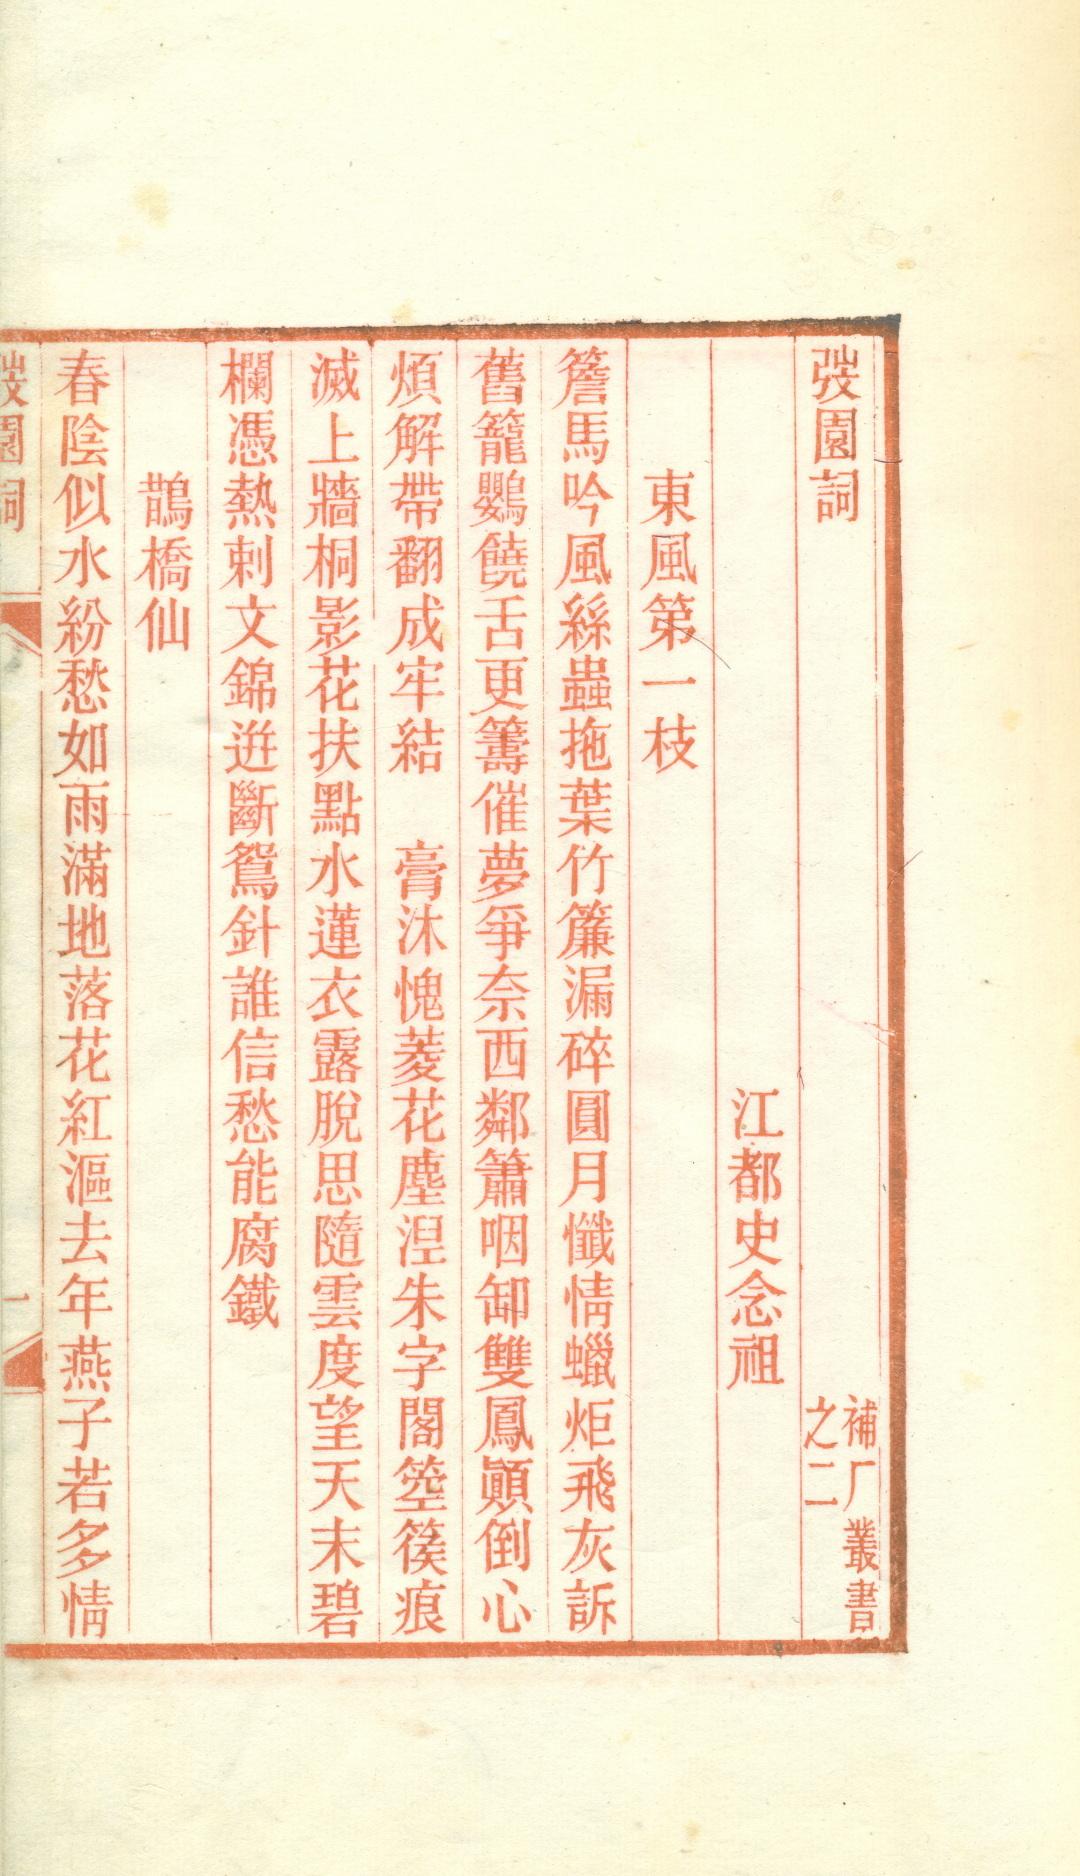 弢園詞
補厂叢書
之二
江都史念祖
東風第一枝
簷馬吟風絲蟲拖葉竹簾漏碎圓月懺情蠟炬飛灰訴
舊籠鸚饒舌更籌催夢爭奈西鄰簫咽卸雙鳳顚倒心
煩解帶翻成牢結　膏沐愧菱花塵涅朱字閣箜篌痕
滅上牆桐影花扶點水蓮衣露脫思隨雲度望天末碧
欄憑熱刺文錦迸斷鴛針誰信愁能腐鐵
鵲橋仙
春陰似水紛愁如雨滿地落花紅漚去年燕子若多情
弢園詞
一